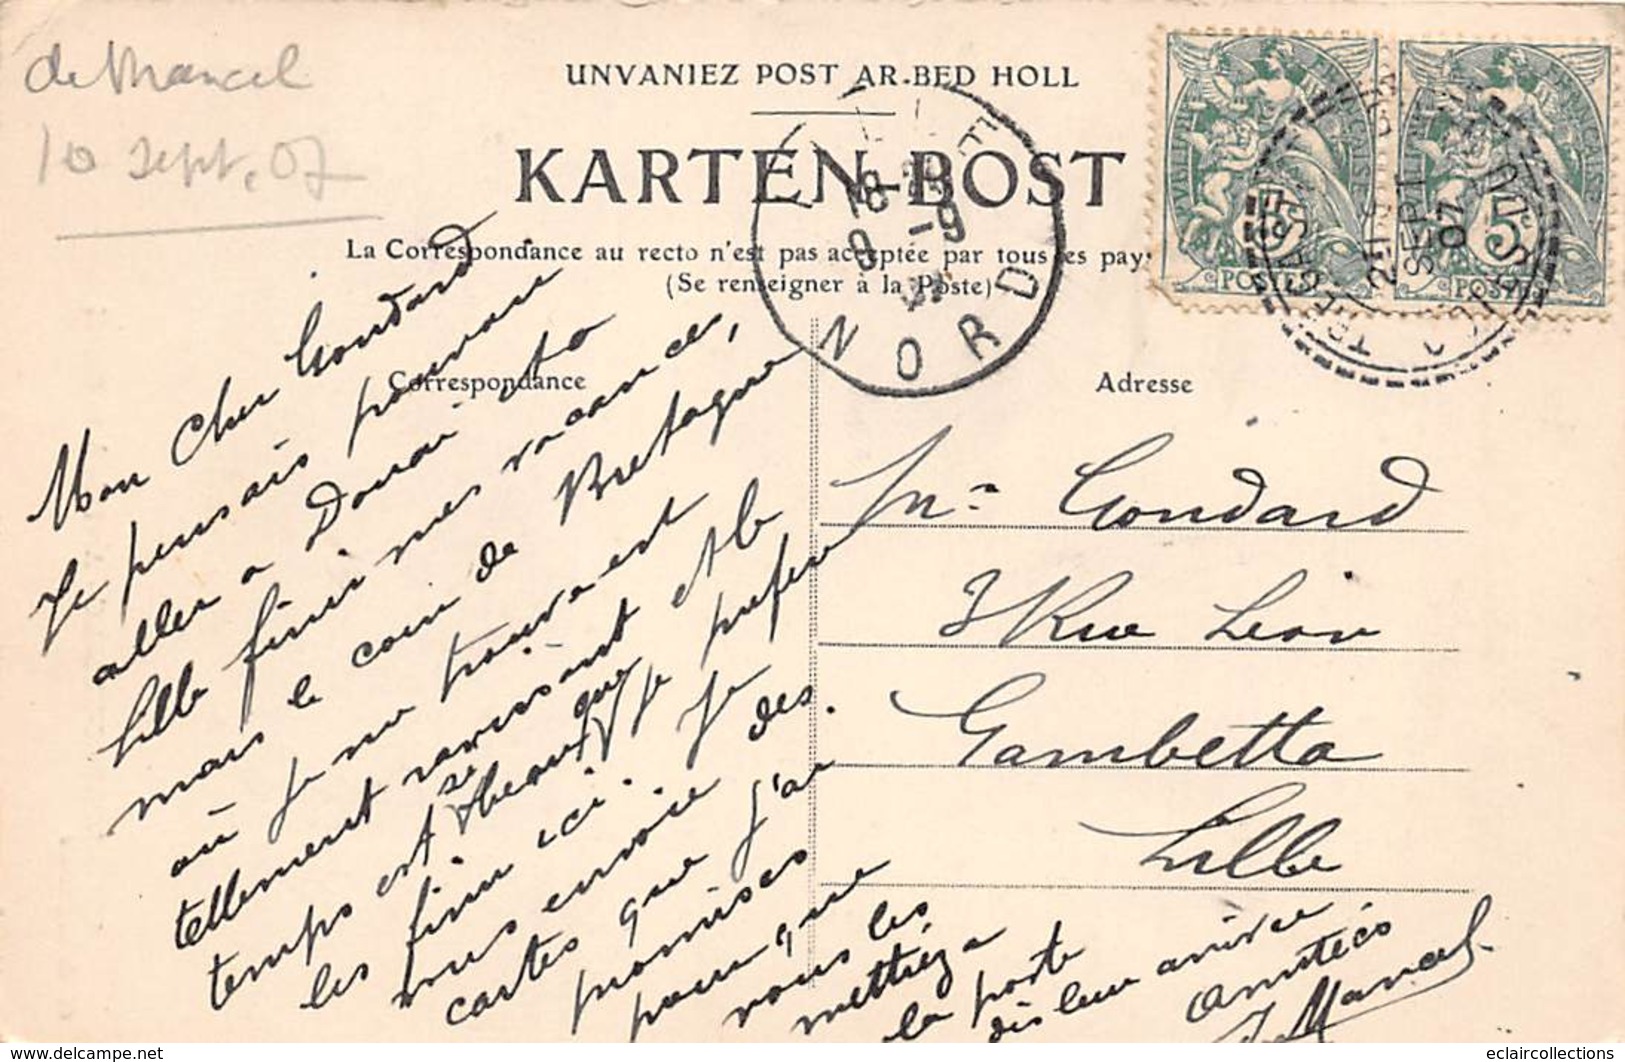 de Marcel
10 sept. 07
UNVANIEZ POST AR-BED HOLL
KARTEN-BOST
La Correspondance au recto n'est pas acceptée par tous les pays
(Se renseigner à la Poste)
NORD
18
9 -9
TREGASTEL
29 SEPT
07
POSTES
5
POSTES
Correspondance
Mon cher Gondard
Je pensais pouvoir
aller a Douai et a
Lille finir mes vacances,
mais le coin de Bretagne
où je me trouve est
tellement ravissant et le
temps est si beau que je préfère
les finir ici. Je
vous envoie des
cartes que j'ai
promises
pour que
vous les
mettiez a
la poste
dès leur arrivée
Amitiés
Marcel.
Adresse
Mr Gondard
3 Rue Léon
Gambetta
Lille
eclaircollections